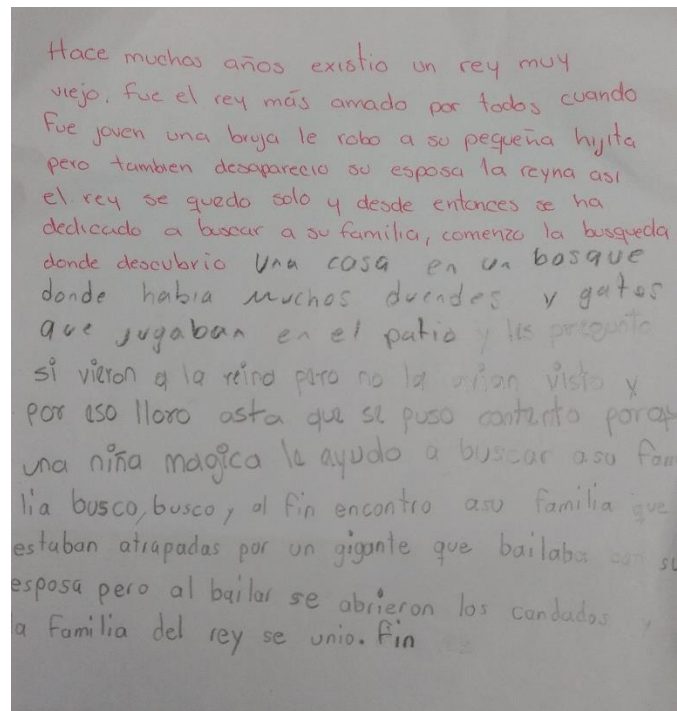 Hace muchos años existio un rey muy
viejo. fue el rey más amado por todos cuando
fue joven una bruja le robo a su pequeña hijita
pero tambien desaparecio su esposa la reyna asi
el rey se quedo solo y desde entonces se ha
dedicado a buscar a su familia, comenzo la busqueda
donde descubrio una casa en un bosque
donde habia muchos duendes y gatos
que jugaban en el patio y les pregunto
si vieron a la reina pero no la avian visto y
por eso lloro asta que se puso contento
una niña magica le ayudo a buscar asu fam
lia busco, busco, y al fin encontro asu familia que
estaban atrapadas por un gigante que bailaba con su
esposa pero al bailar se abrieron los candados y
a familia del rey se unio. Fin